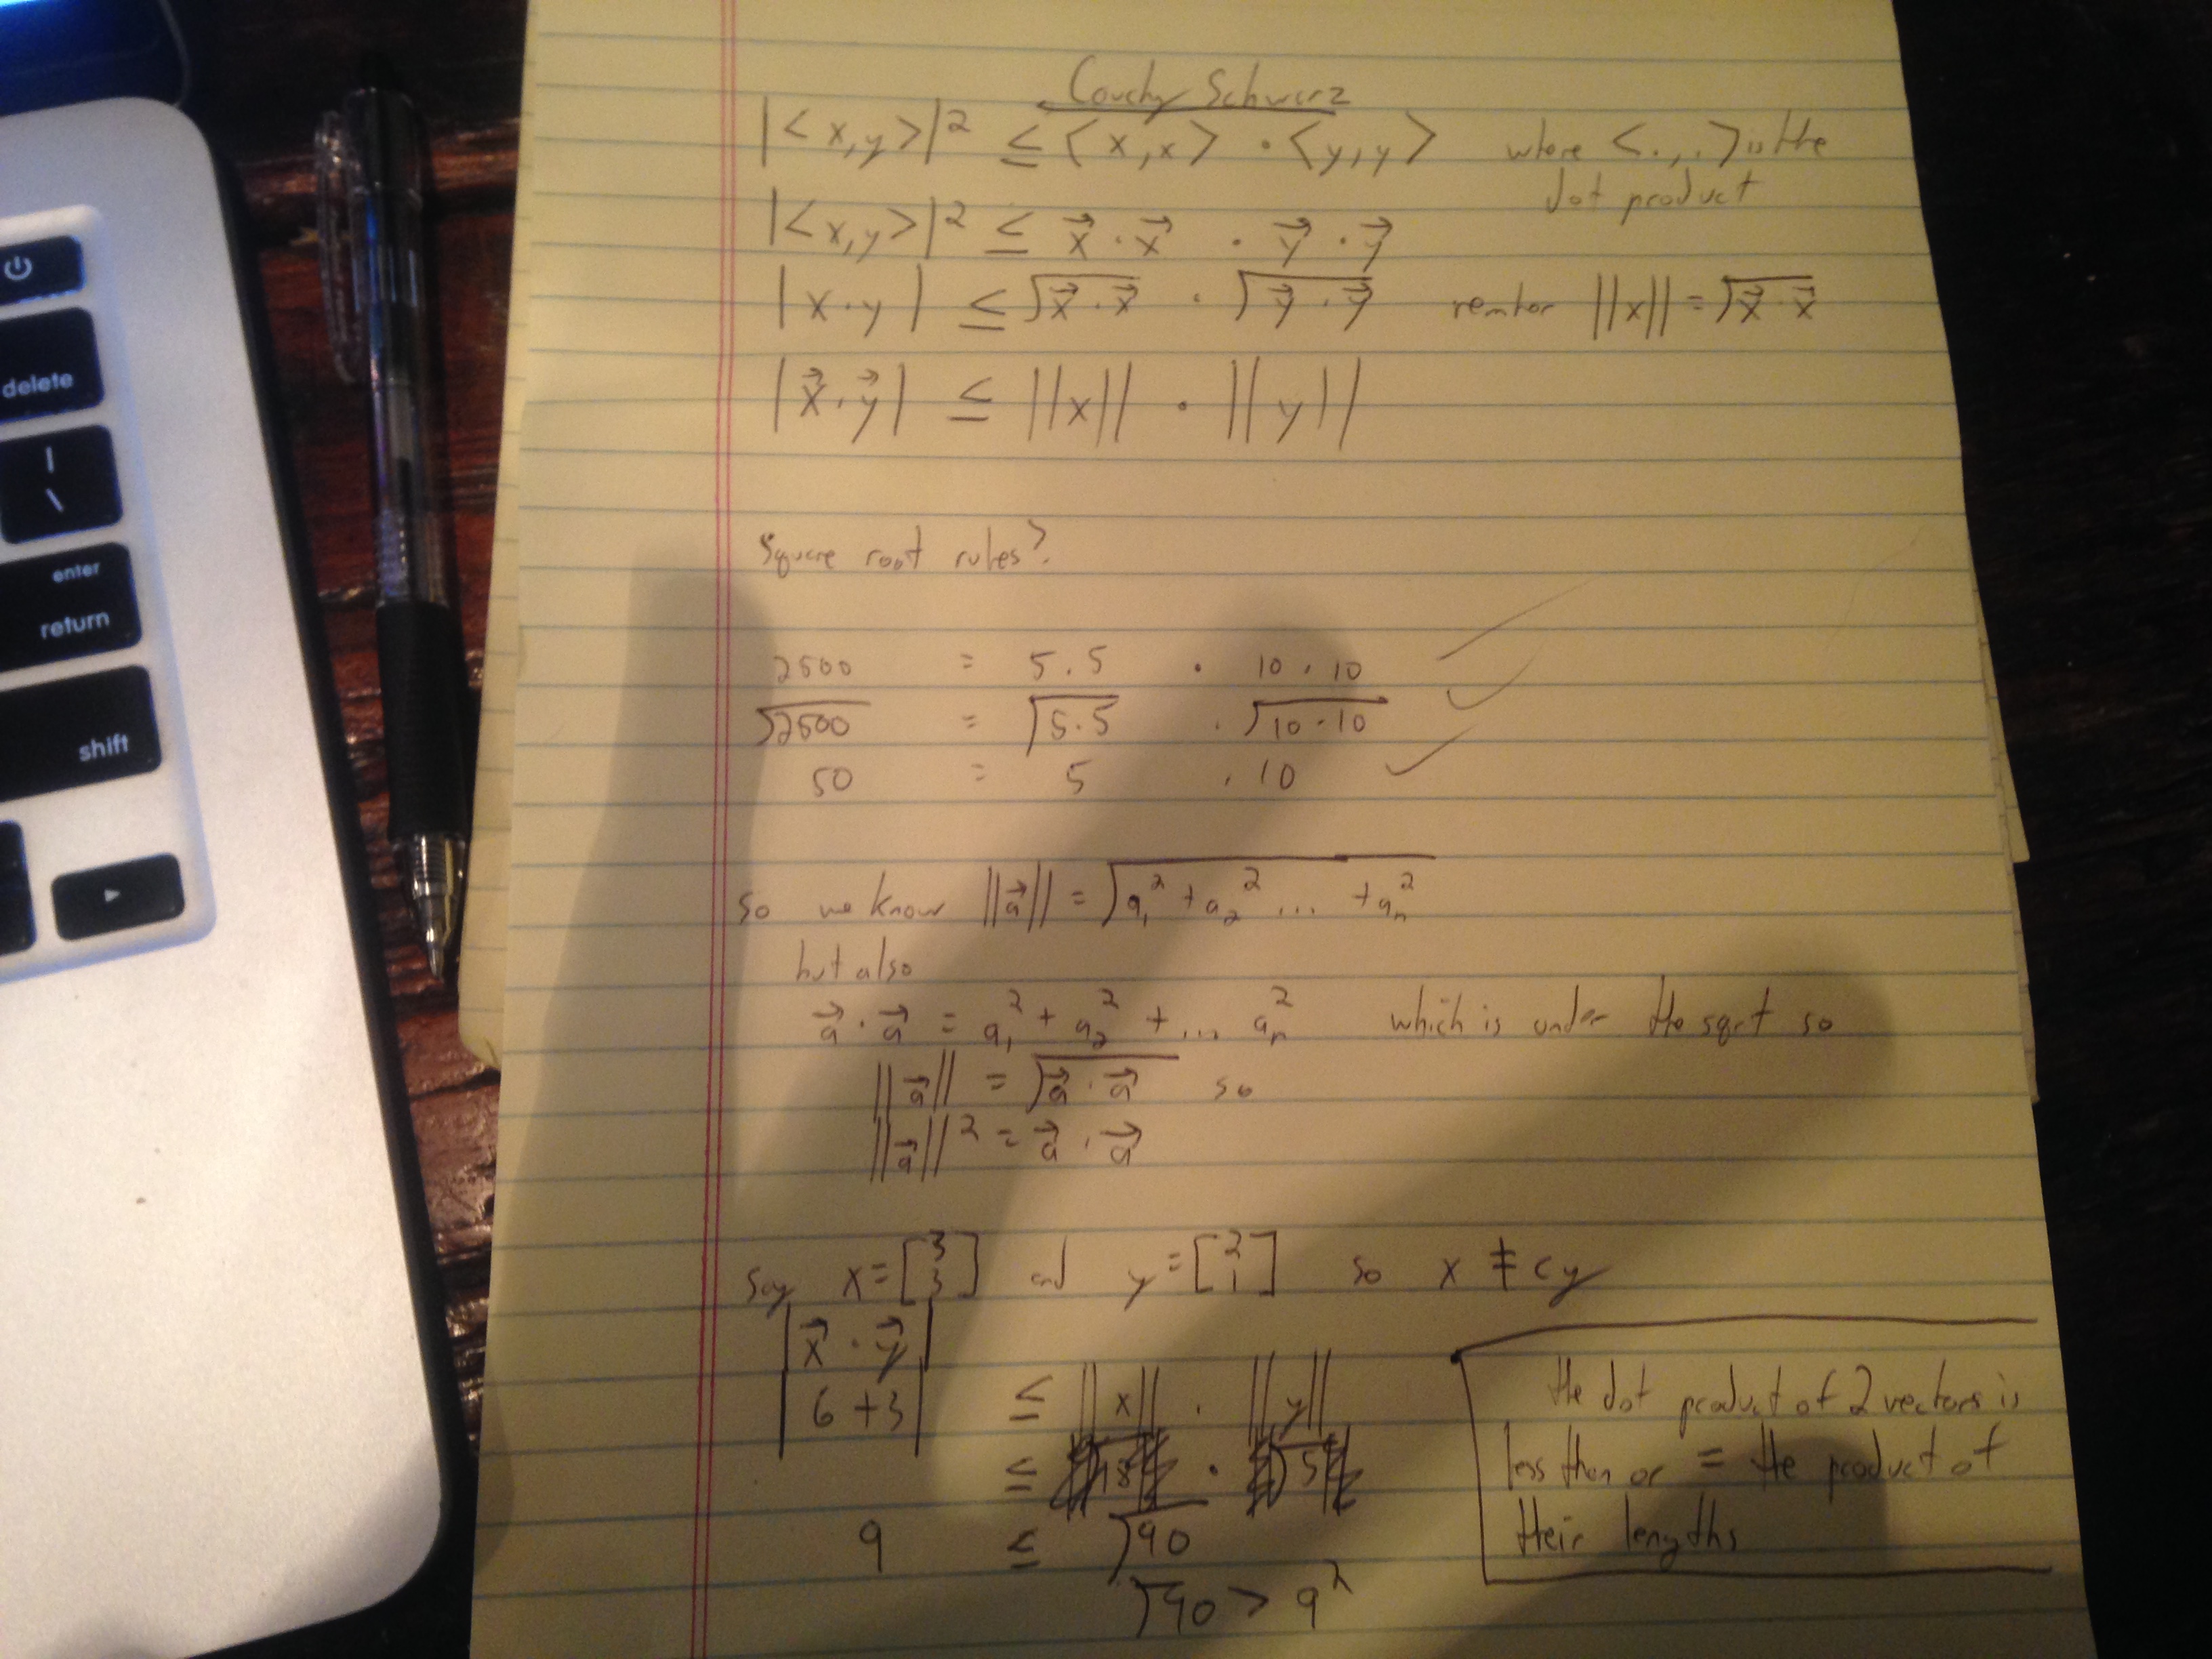 delete
enter
return
shift
Cauchy Schwarz
|<x,y>|² ≤ <x,x> · <y,y> where <.,.> is the
dot product
|<x,y>|² ≤ x⃗·x⃗ · y⃗·y⃗
|x·y| ≤ √x⃗·x⃗ · √y⃗·y⃗ rember ||x|| = √x⃗·x⃗
|x⃗·y⃗| ≤ ||x|| · ||y||
square root rules?
2500 = 5·5 · 10·10
√2500 = √5·5 · √10·10
50 = 5 · 10
so we know ||a⃗|| = √a₁² + a₂² ... + aₙ²
but also
a⃗·a⃗ = a₁² + a₂² + ... aₙ² which is under the sqrt so
||a⃗|| = √a⃗·a⃗ so
||a⃗||² = a⃗·a⃗
say x = [3 3] and y = [2 1] so x ≠ cy
|x⃗·y⃗|
|6+3| ≤ ||x|| · ||y||
≤
9 ≤ √90
√90 > 9
the dot product of 2 vectors is
less then or = the product of
their lengths